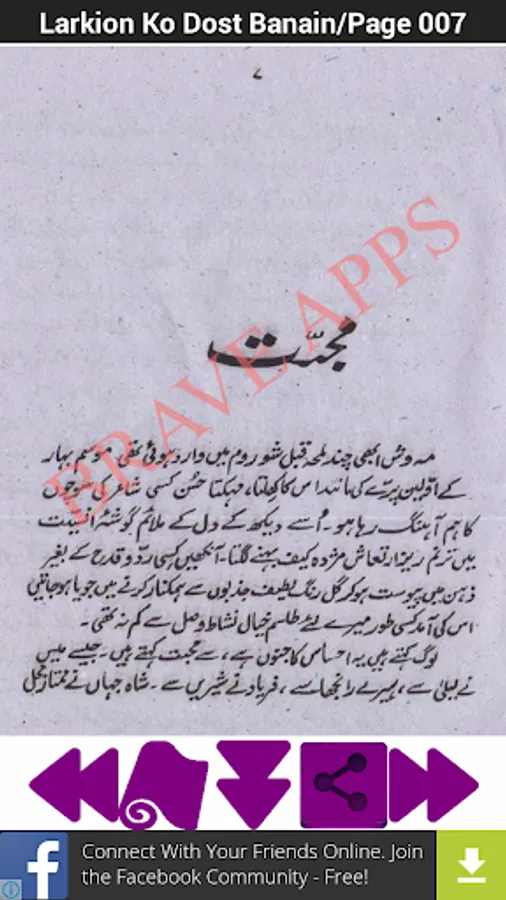 Larkion Ko Dost Banain/Page 007
۷
محبّت
BRAVE APPS
مہ وش ابھی چند لمحہ قبل شوروم میں وارد ہوئی تھی موسم بہار
کے اوّلین پرے کی مانند اس کا کھلتا، مہکتا حسن کسی شاعر کی سوچوں
کا ہم آہنگ رہا ہو۔ اُسے دیکھ کے دل کے ملائم گوشۂ انسیت
میں ترنم ریز ارتعاش مژدہ کیف بہنے لگتا۔ آنکھیں کسی ردّ و قدح کے بغیر
ذہن میں پیوست ہو کر گل رنگ لطیف جذبوں سے ہمکنار کرنے میں جویا ہو جاتیں
اس کی آمد کسی طور میرے لئے طلسم خیال نشاط وصل سے کم نہ تھی۔
لوگ کہتے ہیں یہ احساس کا جنوں ہے، اسے محبت کہتے ہیں۔ جیسے میں
نے لیلیٰ سے، ہیرے رانجھا سے، فرہاد نے شیریں سے۔ شاہ جہاں نے ممتاز محل
Connect With Your Friends Online. Join
the Facebook Community - Free!